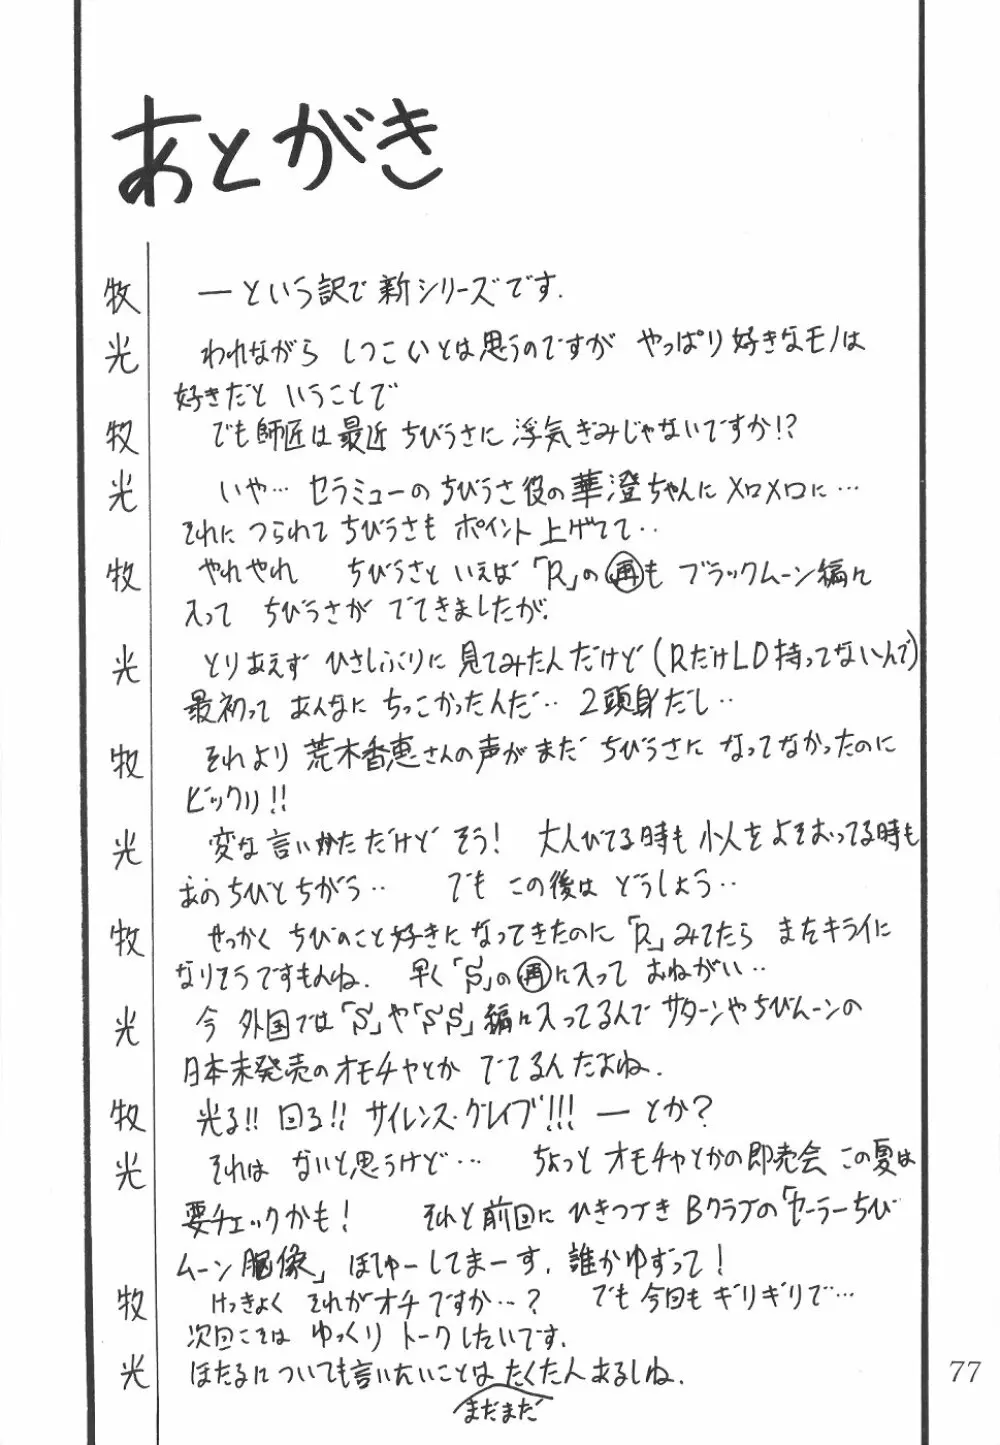 あとがき
牧 ―という訳で新シリーズです.
光 われながら しつこいとは思うのですが やっぱり好きなモノは
好きだと いうことで
牧 でも師匠は最近 ちびうさに 浮気ぎみじゃないですか!?
光 いや… セラミューのちびうさ役の華澄ちゃんにメロメロに…
それに つられて ちびうさも ポイント上げてて‥
牧 やれやれ ちびうさと いえば「R」の再も ブラックムーン編に
入って ちびうさが でてきましたが.
光 とりあえず ひさしぶりに 見てみたんだけど (RだけLD持ってないんで)
最初って あんなに ちっこかったんだ‥ 2頭身だし‥
牧 それより 荒木香恵さんの声が まだ ちびうさに なってなかったのに
ビックリ!!
光 変な言いかただけど そう! 大人びてる時も 小人をよそおってる時も
あのちびとちがう‥ でも この後は どうしよう‥
牧 せっかく ちびのこと好きになってきたのに「R」みてたら またキライに
なりそうですもんね. 早く「S」の再に入って おねがい‥
光 今 外国では「S」や「SS」編に入ってるんで サターンやちびムーンの
日本未発売のオモチャとか でてるんだよね.
牧 光る!! 回る!! サイレンス・グレイブ!!! ―とか?
光 それは ないと思うけど… ちょっと オモチャとかの即売会 この夏は
要チェックかも! それと前回に ひきつづき Bクラブの「セーラーちび
ムーン胸像」ぼしゅーしてまーす. 誰かゆずって!
牧 けっきょく それがオチですか…? でも 今回も ギリギリで…
次回こそは ゆっくり トークしたいです.
光 ほたるについても言いたいことは たくさんあるしね.
まだまだ
77